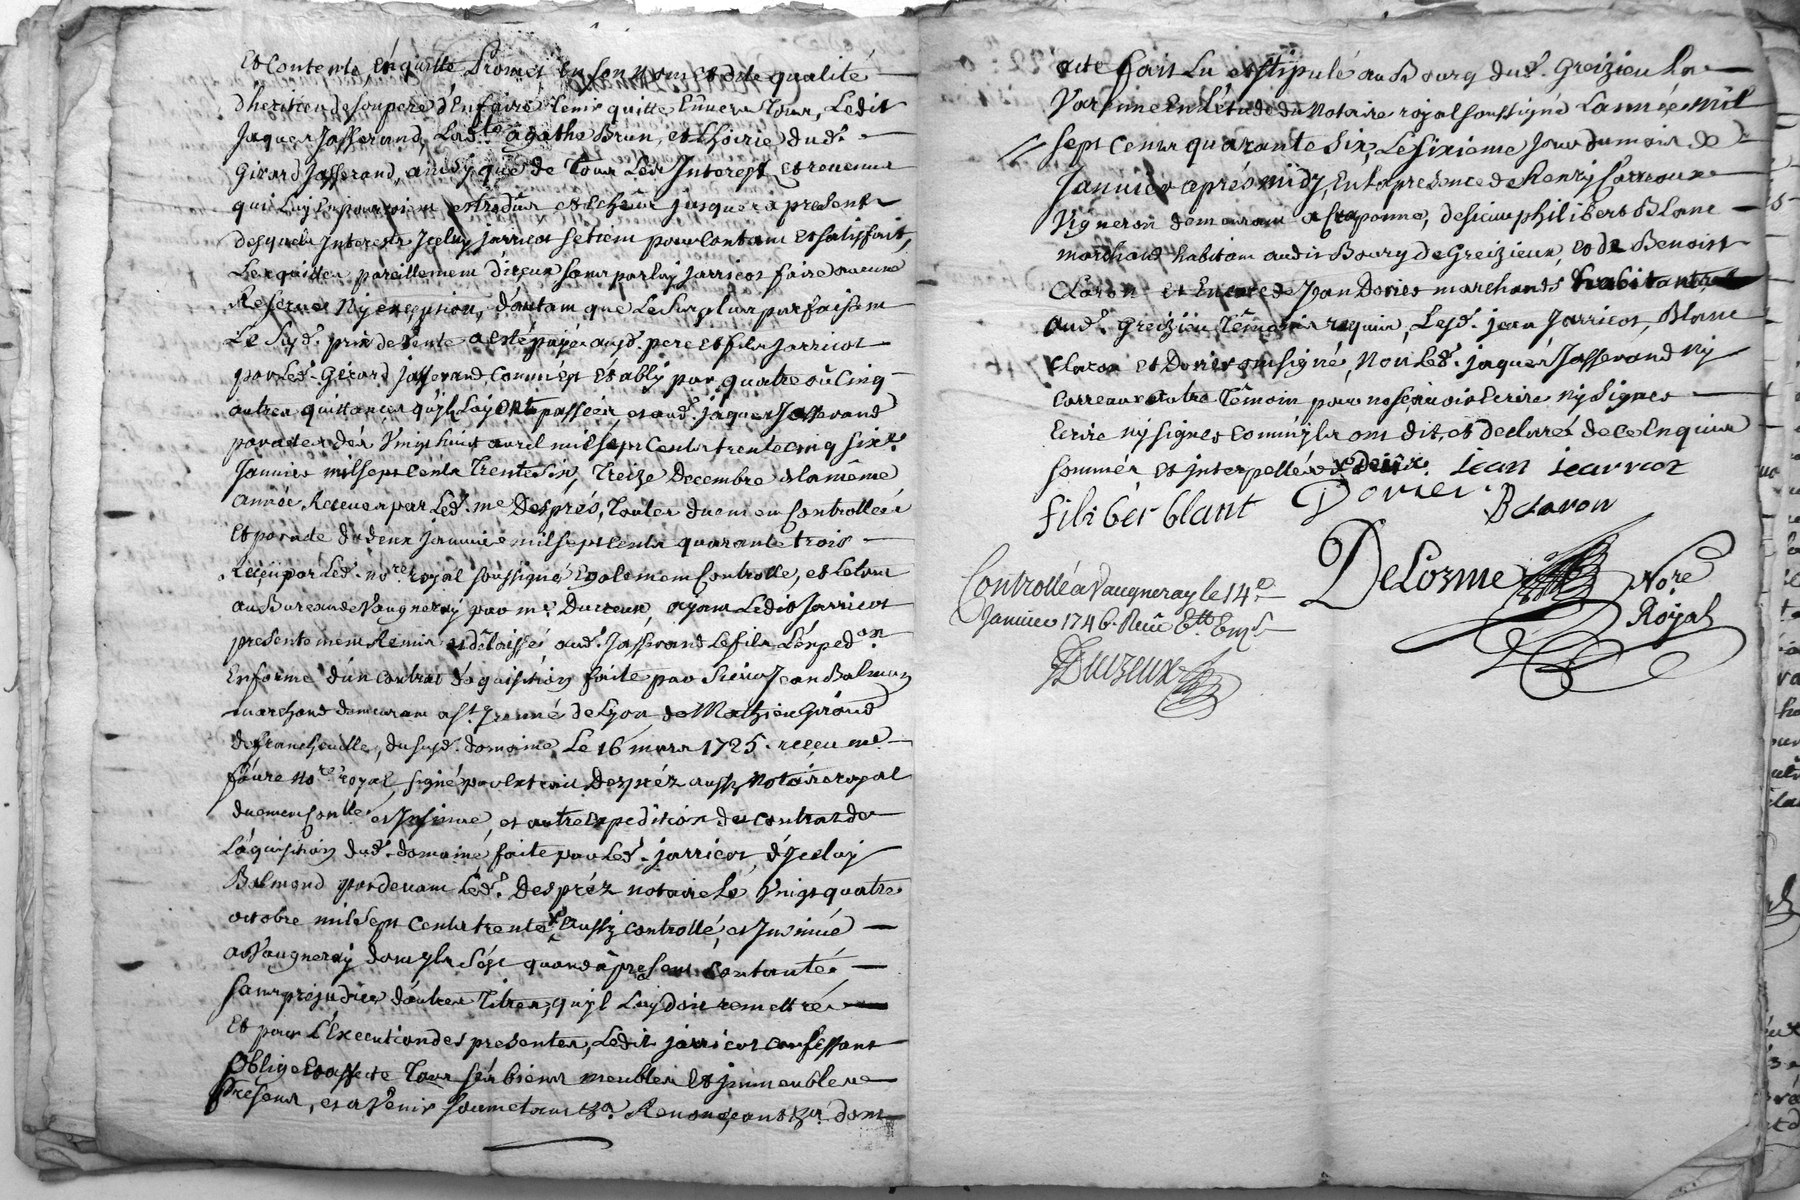 Et Contente, En quitte Promet En son nom et ditte qualité
d'heritier de son pere d'En faire tenir quitte Envers tous, Ledit
Jaques Jasserand, Lad.te agathe Brun, et l'hoirie dud.
Girard Jasserand, ainsy que de Tous Les Interest et revenus
qui Luy En pourroient estre dûs et Echeus jusques a present
desquels Interests Iceluy Jarricot se tient pour Contant et satisfait,
Les quitter pareillement d'iceux sans par luy Jarricot faire aucune
Reserves Ny exception, d'autant que Le Surplus parfaisant
Le Susd. prix de vente a esté payé ausd. pere et fils Jarricot
par Led. Girard Jasserand, Comm'est Etably par quatre ou Cinq
autres quittances qu'ils Luy ont passées, et aud. jaques Jasserand
par actes des Vingt huit avril mil sept Cents trente Cinq six.e
Janvier mil sept Cents Trente Six, Treize Decembre de la même
année Receues par Led. me Després, Toutes duement Controllées
Et par acte du deux Janvier mil sept Cents quarante trois
Receu par Led. no.re royal soussigné Egalement Controllé, et Le tout
au Bureau de Vaugneray par me. Duzeux, ayant Ledit Jarricot
presentement Remis et delaissé aud. Jasserand Le fils L'Exped.on
En forme d'un Contrat d'aquisition faite par Sieur Jean Balmon
marchand demeurant a St. Irenné de Lyon de Mathieu Giroud
de francheville, du susd. domaine Le 16 mars 1725. receu me.
faure No.re royal, signé par Extrait Desprez aussy Notaire royal
duement Con.llé et Insinué, et autre Expedition du contrat de
L'aquisition dud. domaine faite par Led. jarricot, d'Iceluy
Balmond par devant Led. Desprèz notaire Le Vingt quatre
octobre mil sept Cents trente aussy controllé et Insinué
a Vaugneray dont Ils s'est quand a present contanté
sans prejudice d'autres Titres, qu'il Luy doit remettre
Et pour L'Execution des presentes, Ledit jarricot confessant
oblige et affecte Tous ses biens meubles et immeubles
Presents, et a Venir soumetant &a. Renonçant &a. dont
acte fait Lu et stipulé au Bourg dud. Greizieu La
Varenne En l'étude du Notaire royal soussigné L'année mil
sept Cents quarante Six, Le sixieme jour du mois de
Janvier aprés midy, En la presence de Henry Carreoux
Vigneron demeurant a Craponne, de sieur philibert Blanc
marchand habitant audit Bourg de Greizieux, et de Benoist
Claron et Encore de Jean Dorier marchands habitants
aud. Greizieu Témoins requis, Lesd. jean Jarricot, Blanc
Claron et Dorier ont signé, Non Led. jaques Jasserand Ny
Carreaux autre Témoin pour ne sçavoir Ecrire Ny Signer
Ecrire ny signer comm'ils ont dit, et declaré de ce Enquis
sommés et interpellés jean jearricot
filibér blant Dorier B claron
DeLorme No.re
Royal
Controllé a Vaugneray le 14.e
Janvier 1746. Receu
Duzeux